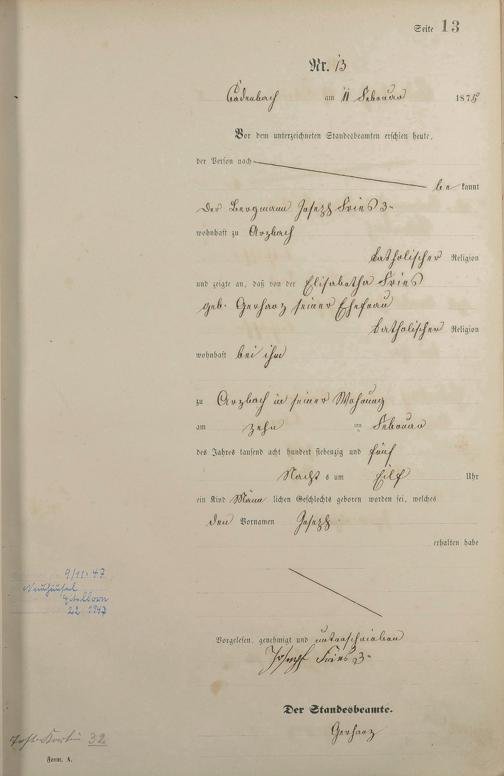 Seite 13
Nr. 13
Cadenbach am 11 Februar 1875
Vor dem unterzeichneten Standesbeamten erschien heute,
der Person nach
be kannt
der Bergmann Joseph Fries 3-
wohnhaft zu Arzbach
katholischer Religion
und zeigte an, daß von der Elisabetha Fries
geb. Gerharz seiner Ehefrau
katholischer Religion
wohnhaft bei ihm
zu Arzbach in seiner Wohnung
am zehn ten Februar
des Jahres tausend acht hundert siebenzig und fünf
Nacht s um Eilf Uhr
ein Kind Männ lichen Geschlechts geboren worden sei, welches
den Vornamen Joseph
erhalten habe
9/11. 47
Neuhäusel
22 1947
Vorgelesen, genehmigt und unterschrieben
Joseph Fries 3-
Der Standesbeamte.
Gerharz
32
Form. A.